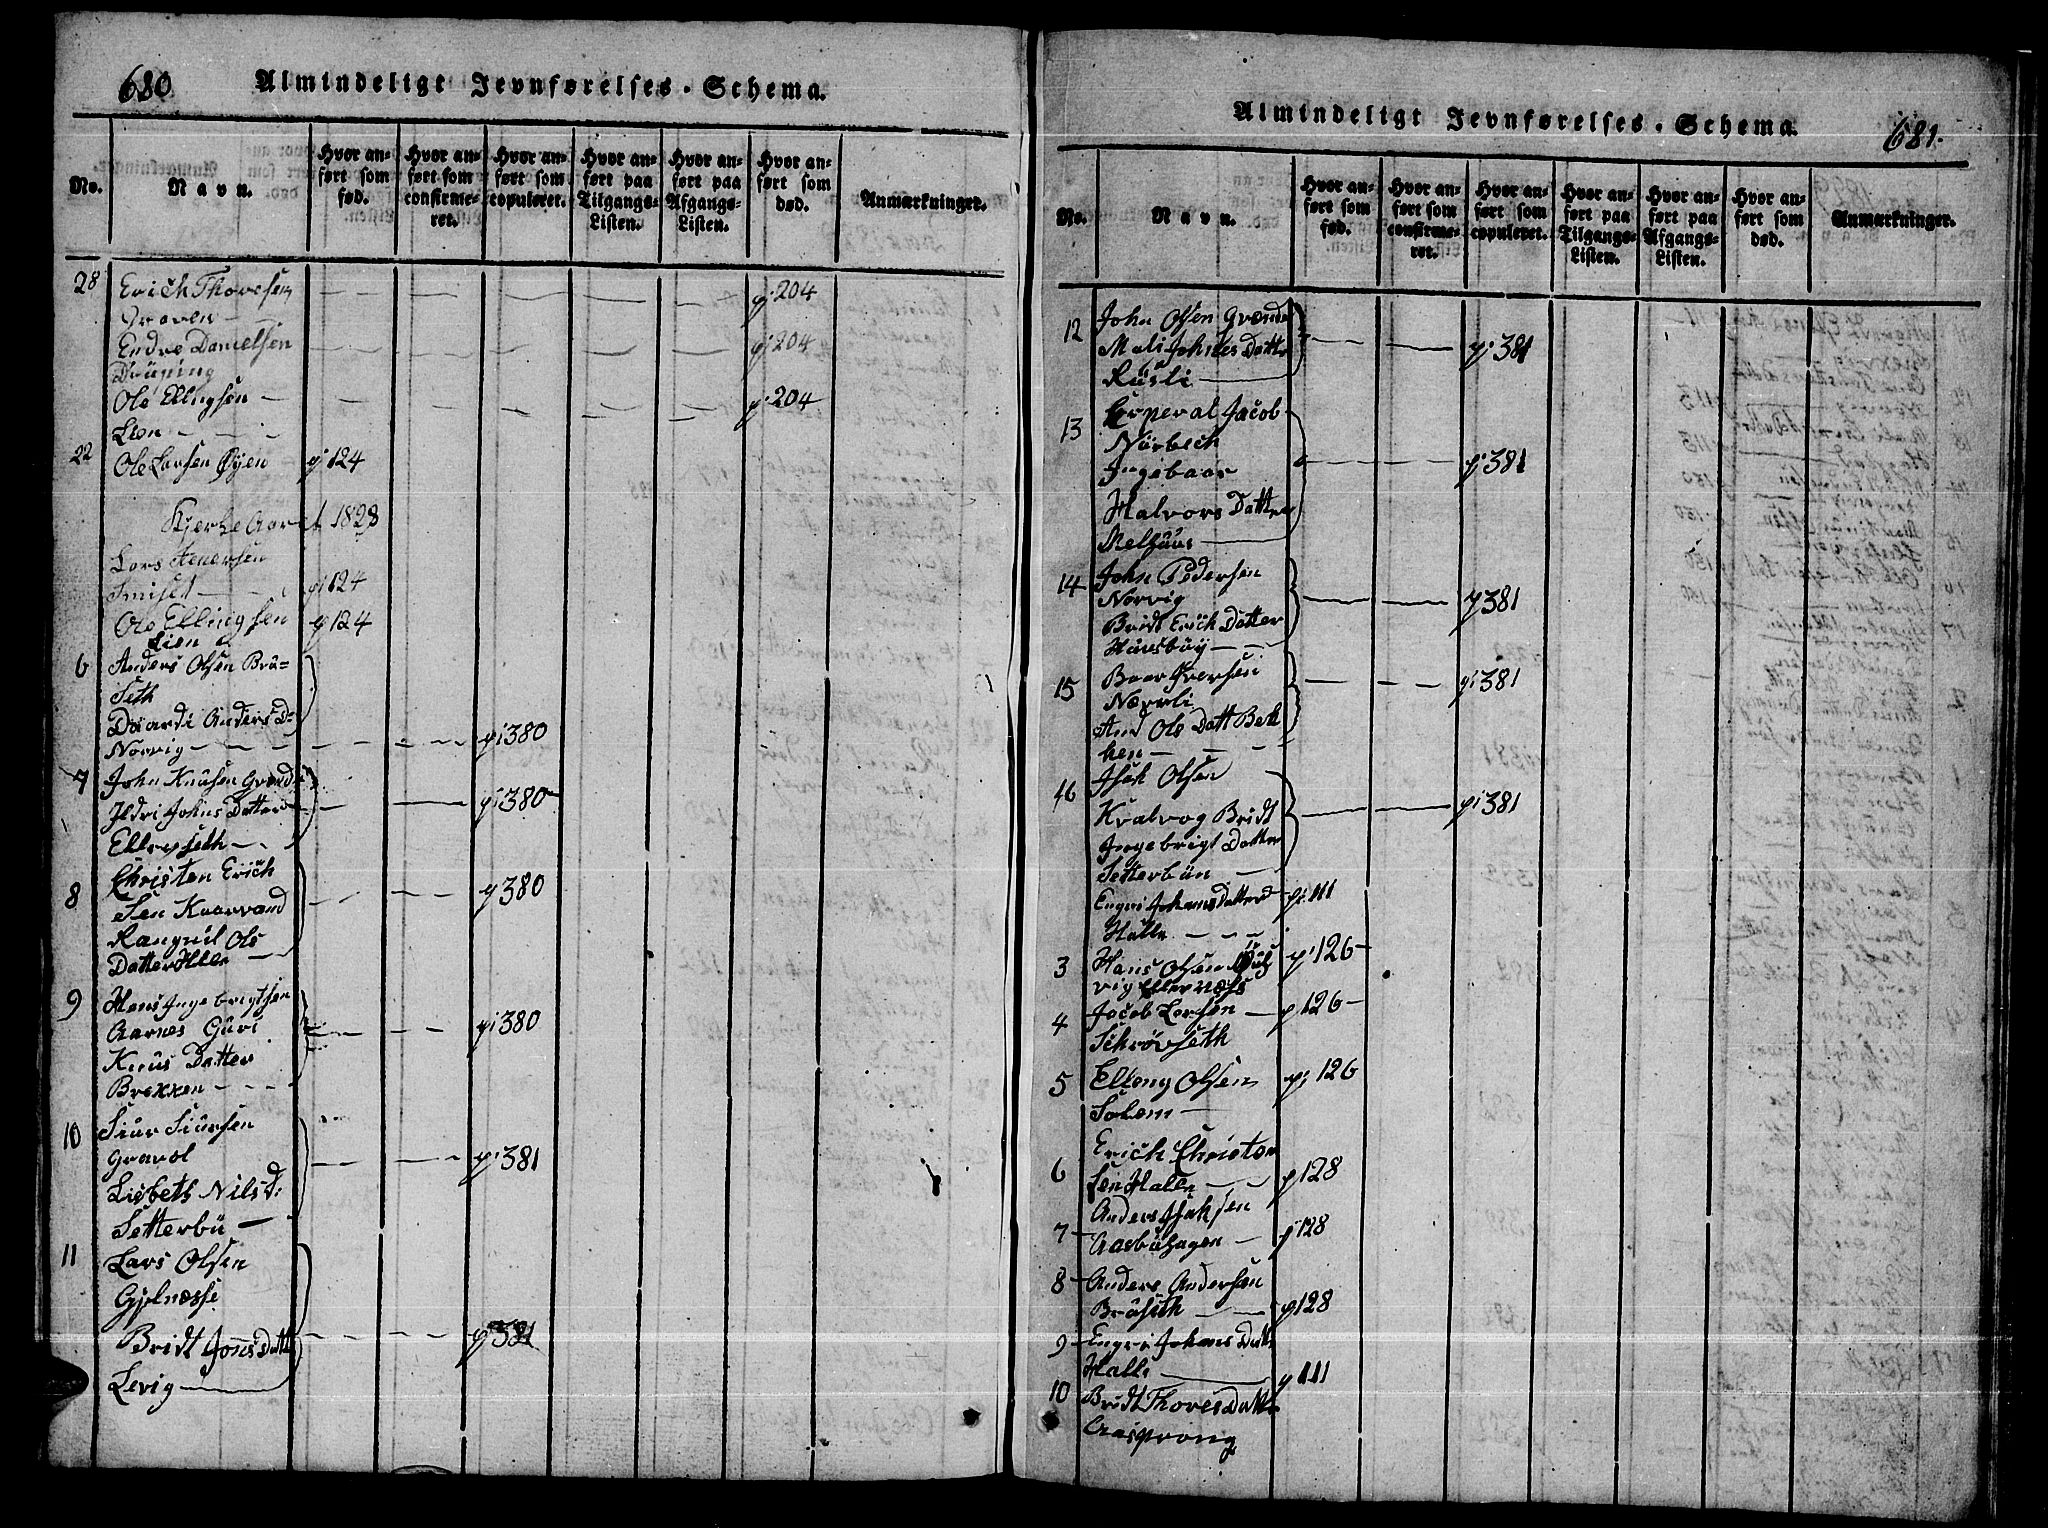 680
Almindeligt Jevnførelses-Schema.
No.
Navn.
Hvor an-
ført som
fød.
Hvor an-
ført som
confirme-
ret.
Hvor an-
ført som
copuleret.
Hvor an-
ført paa
Tilgangs-
Listen.
Hvor an-
ført paa
Afgangs-
Listen.
Hvor an-
ført som
død.
Anmærkninger.
28 Erich Thoresen p: 204
Graven
Endre Danielsen p: 204
Ole Ellingsen p: 204
Lien
22 Ole Larsen Øyen p: 124
Kjerke Aaret 1828
Lars
p: 124
Ole Ellingsen p: 124
Lien
6 Anders Olsen Brü-
seth
Anders D-
Norvig p: 380
7 John Knüsen
Johns Datter p: 380
8 Christen Erich p: 380
sen Kaarvand
Rangnil Ols
Datter
9 Hans Ingebrigtsen
Aarnes Guri p: 380
Knüs Datter
Brekken
10 Siur Siursen
p: 381
Lisbeth Nilsd:
Setterbü
11 Lars Olsen
Gjelnesse
Bridt Jons Datt p: 381
Levig
Almindeligt Jevnførelses-Schema.
681.
No.
Navn.
Hvor an-
ført som
fød.
Hvor an-
ført som
confirme-
ret.
Hvor an-
ført som
copuleret.
Hvor an-
ført paa
Tilgangs-
Listen.
Hvor an-
ført paa
Afgangs-
Listen.
Hvor an-
ført som
død.
Anmærkninger.
12 John Olsen
Mali Johnes Datter p: 381
Rüsli
13 Corperal Jacob
Nürbech
Ingebaar p: 381
Halvors Datter
Melhuus
14 John Pedersen
Norvig p: 381
Bridt Erich Datter
Hüusbøy
15 Baar Iversen p: 381
Nærli
And Ols Datt Bek
ken
16 Isak Olsen
Kvalvog Bridt p: 381
Ingebrigt Datter
Setterbün
Engri Johansdatter p: 111
Halle
3 Hans Olsen p: 126
4 Jacob Larsen p: 126
Schrøvseth
5 Elleng Olsen p: 126
Solem
6 Erich Christen
sen Halle p 128
7 Anders Isaksen
Aasbøhagen p 128
8 Anders Andersen
Brüseth p 128
9 Engri Johans Datt
Halle p 111
10 Bridt Thores Datter
Aasprong